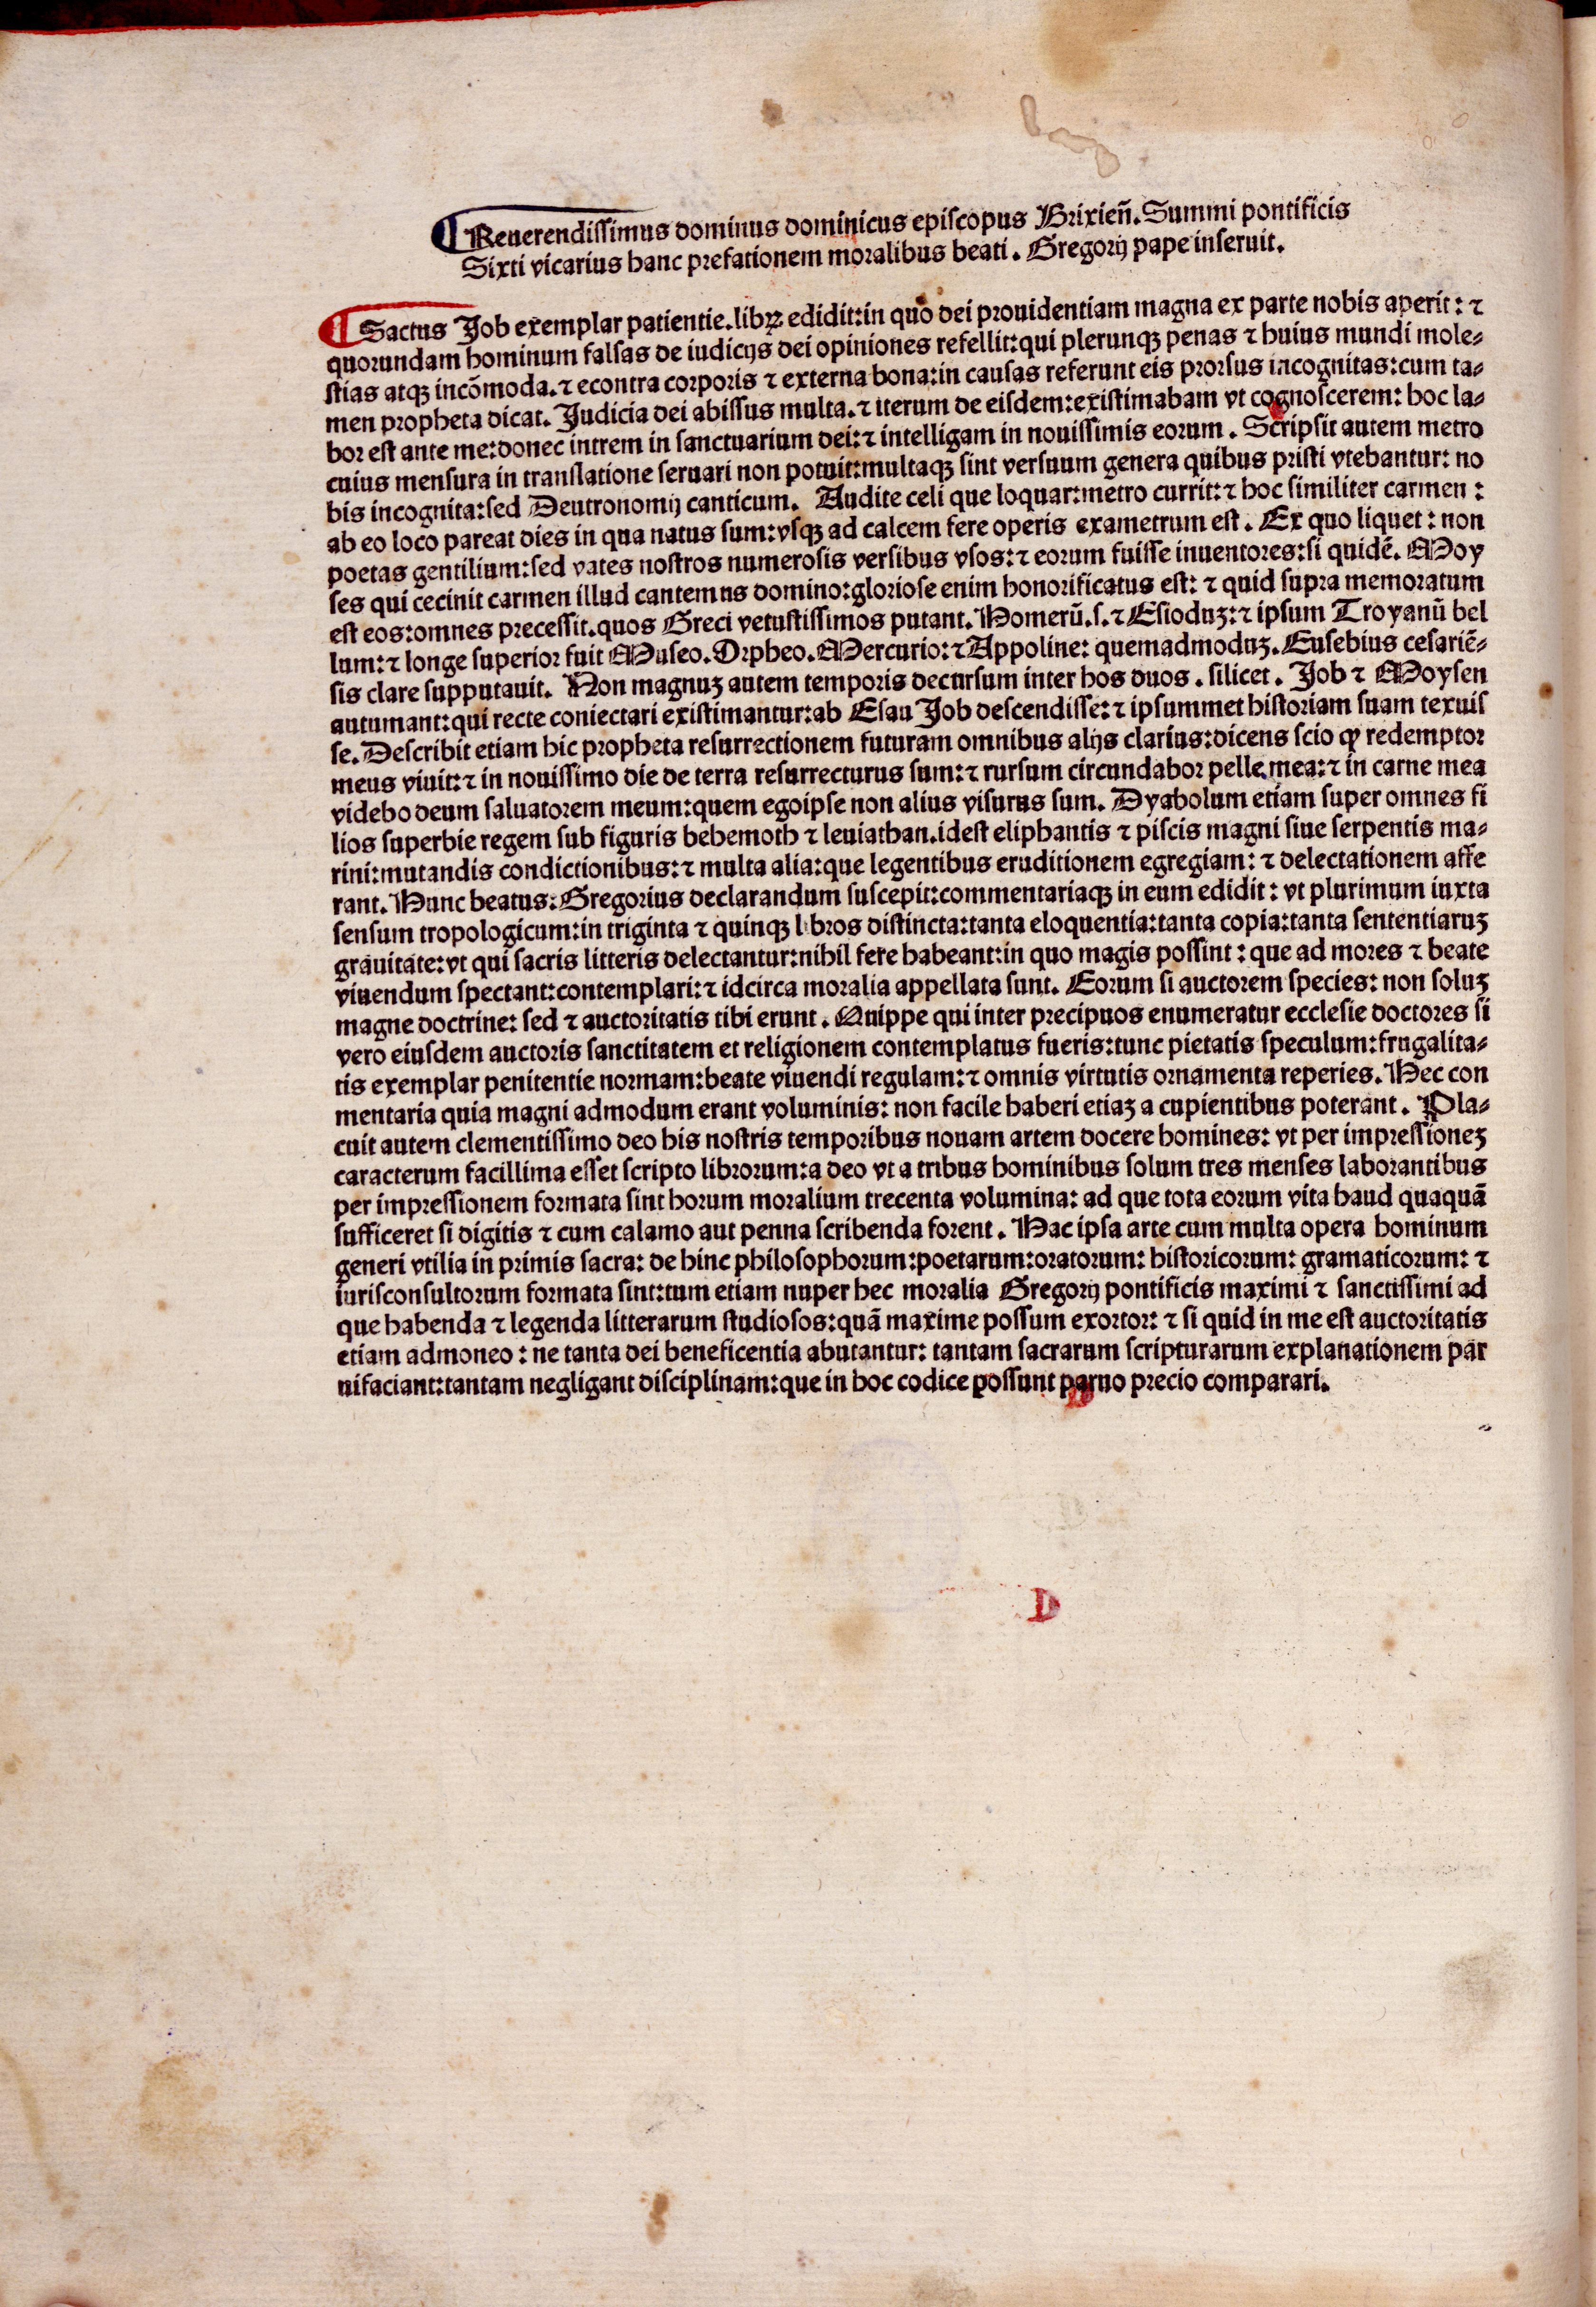 ¶ Reuerendissimus dominus dominicus episcopus Brixien̄. Summi pontificis
Sixti vicarius hanc prefationem moralibus beati. Gregorij pape inseruit.
¶ Sactus Job exemplar patientie.libꝝ edidit:in quo dei prouidentiam magna ex parte nobis aperit: ⁊
quorundam hominum falsas de iudicijs dei opiniones refellit:qui plerunqꝫ penas ⁊ huius mundi mole-
stias atqꝫ incōmoda.⁊ econtra corporis ⁊ externa bona:in causas referunt eis prorsus incognitas:cum ta-
men propheta dicat. Judicia dei abissus multa.⁊ iterum de eisdem:existimabam vt cognoscerem: hoc la-
bor est ante me:donec intrem in sanctuarium dei:⁊ intelligam in nouissimis eorum. Scripsit autem metro
cuius mensura in translatione seruari non potuit:multaqꝫ sint versuum genera quibus pristi vtebantur: no
bis incognita:sed Deutronomij canticum. Audite celi que loquar:metro currit:⁊ hoc similiter carmen:
ab eo loco pareat dies in qua natus sum:vsqꝫ ad calcem fere operis exametrum est. Ex quo liquet: non
poetas gentilium:sed vates nostros numerosis versibus vsos:⁊ eorum fuisse inuentores:si quidē. Moy
ses qui cecinit carmen illud cantemus domino:gloriose enim honorificatus est: ⁊ quid supra memoratum
est eos:omnes precessit.quos Greci vetustissimos putant. Homerū.s.⁊ Esioduꝫ:⁊ ipsum Troyanū bel
lum:⁊ longe superior fuit Museo.Orpheo.Mercurio:⁊ Appoline: quemadmoduꝫ.Eusebius cesariē-
sis clare supputauit. Non magnuꝫ autem temporis decursum inter hos duos. silicet. Job ⁊ Moysen
autumant:qui recte coniectari existimantur:ab Esau Job descendisse:⁊ ipsummet historiam suam texuis
se.Describit etiam hic propheta resurrectionem futuram omnibus alijs clarius:dicens scio ꝙ redemptor
meus viuit:⁊ in nouissimo die de terra resurrecturus sum:⁊ rursum circundabor pelle mea:⁊ in carne mea
videbo deum saluatorem meum:quem egoipse non alius visurus sum. Dyabolum etiam super omnes fi
lios superbie regem sub figuris behemoth ⁊ leuiathan.idest eliphantis ⁊ piscis magni siue serpentis ma-
rini:mutandis condictionibus:⁊ multa alia:que legentibus eruditionem egregiam: ⁊ delectationem affe
rant.Hunc beatus:Gregorius declarandum suscepit:commentariaqꝫ in eum edidit: vt plurimum iuxta
sensum tropologicum:in triginta ⁊ quinqꝫ libros distincta:tanta eloquentia:tanta copia:tanta sententiaruꝫ
grauitate:vt qui sacris litteris delectantur:nihil fere habeant:in quo magis possint: que ad mores ⁊ beate
viuendum spectant:contemplari:⁊ idcirca moralia appellata sunt. Eorum si auctorem species: non soluꝫ
magne doctrine: sed ⁊ auctoritatis tibi erunt. Quippe qui inter precipuos enumeratur ecclesie doctores si
vero eiusdem auctoris sanctitatem et religionem contemplatus fueris:tunc pietatis speculum:frugalita-
tis exemplar penitentie normam:beate viuendi regulam:⁊ omnis virtutis ornamenta reperies.Hec con
mentaria quia magni admodum erant voluminis: non facile haberi etiaꝫ a cupientibus poterant. Pla-
cuit autem clementissimo deo his nostris temporibus nouam artem docere homines: vt per impressioneꝫ
caracterum facillima esset scripto librorum:a deo vt a tribus hominibus solum tres menses laborantibus
per impressionem formata sint horum moralium trecenta volumina: ad que tota eorum vita haud quaquā
sufficeret si digitis ⁊ cum calamo aut penna scribenda forent. Hac ipsa arte cum multa opera hominum
generi vtilia in primis sacra: de hinc philosophorum:poetarum:oratorum: historicorum: gramaticorum: ⁊
iurisconsultorum formata sint:tum etiam nuper hec moralia Gregorij pontificis maximi ⁊ sanctissimi ad
que habenda ⁊ legenda litterarum studiosos:quā maxime possum exortor: ⁊ si quid in me est auctoritatis
etiam admoneo: ne tanta dei beneficentia abutantur: tantam sacrarum scripturarum explanationem par
uifaciant:tantam negligant disciplinam:que in hoc codice possunt paruo precio comparari.